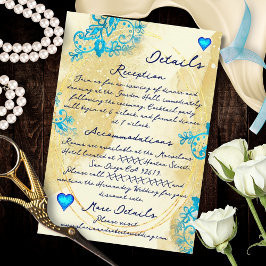 Details
Reception
Join us for an evening of dinner and
dancing at the Garden Hall immediately
following the ceremony. Cocktail party
will begin at 6 o'clock, and formal dinner
at 7 o'clock.
Accommodations
Rooms are available at the
Hotel located at XXXXX Harbor Street,
San Diego CA 92613.
Please call XXXXXXXXXXX and
mention the Hernandez Wedding for your
discount rate.
More Details
Please visit